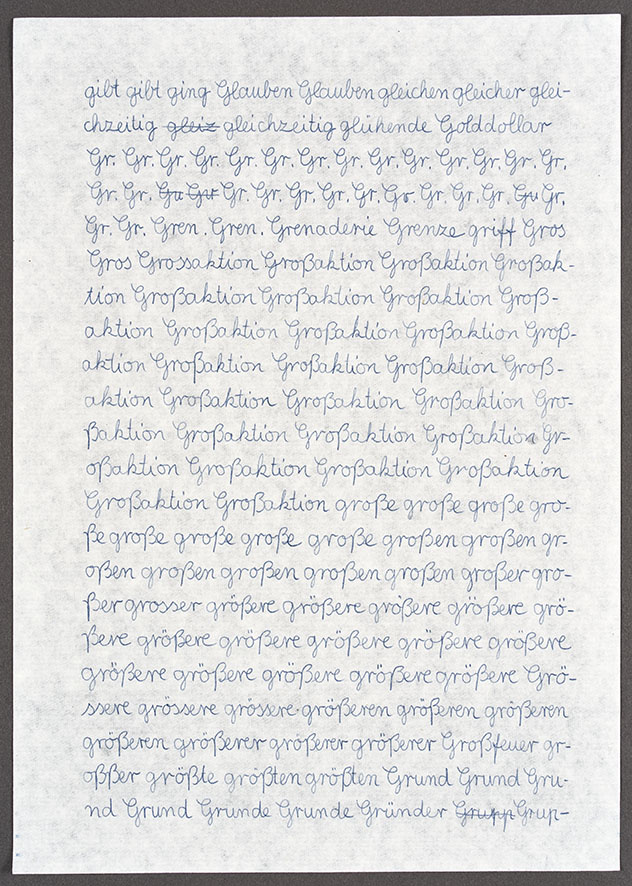 gibt gibt ging Glauben Glauben gleichen gleicher glei-
chzeitig gleiz gleichzeitig glühende Golddollar
Gr. Gr. Gr. Gr. Gr. Gr. Gr. Gr. Gr. Gr. Gr. Gr. Gr. Gr.
Gr. Gr. Gu Gur Gr. Gr. Gr. Gr. Gr. Gr. Gr. Gr. Gr. Gu Gr.
Gr. Gr. Gren. Gren. Grenaderie Grenze griff Gros
Gros Grossaktion Großaktion Großaktion Großak-
tion Großaktion Großaktion Großaktion Groß-
aktion Großaktion Großaktion Großaktion Groß-
aktion Großaktion Großaktion Großaktion Groß-
aktion Großaktion Großaktion Großaktion Gro-
ßaktion Großaktion Großaktion Großaktion Gr-
oßaktion Großaktion Großaktion Großaktion
Großaktion Großaktion große große große gro-
ße große große große große großen großen gr-
oßen großen großen großen großen großer gro-
ßer grosser größere größere größere größere grö-
ßere größere größere größere größere größere
größere größere größere größere größere Grö-
ssere grössere grössere größeren größeren größeren
größeren größerer größerer größerer Großfeuer gr-
oßßer größte größten größten Grund Grund Gru-
nd Grund Grunde Grunde Gründer Grupp Grup-